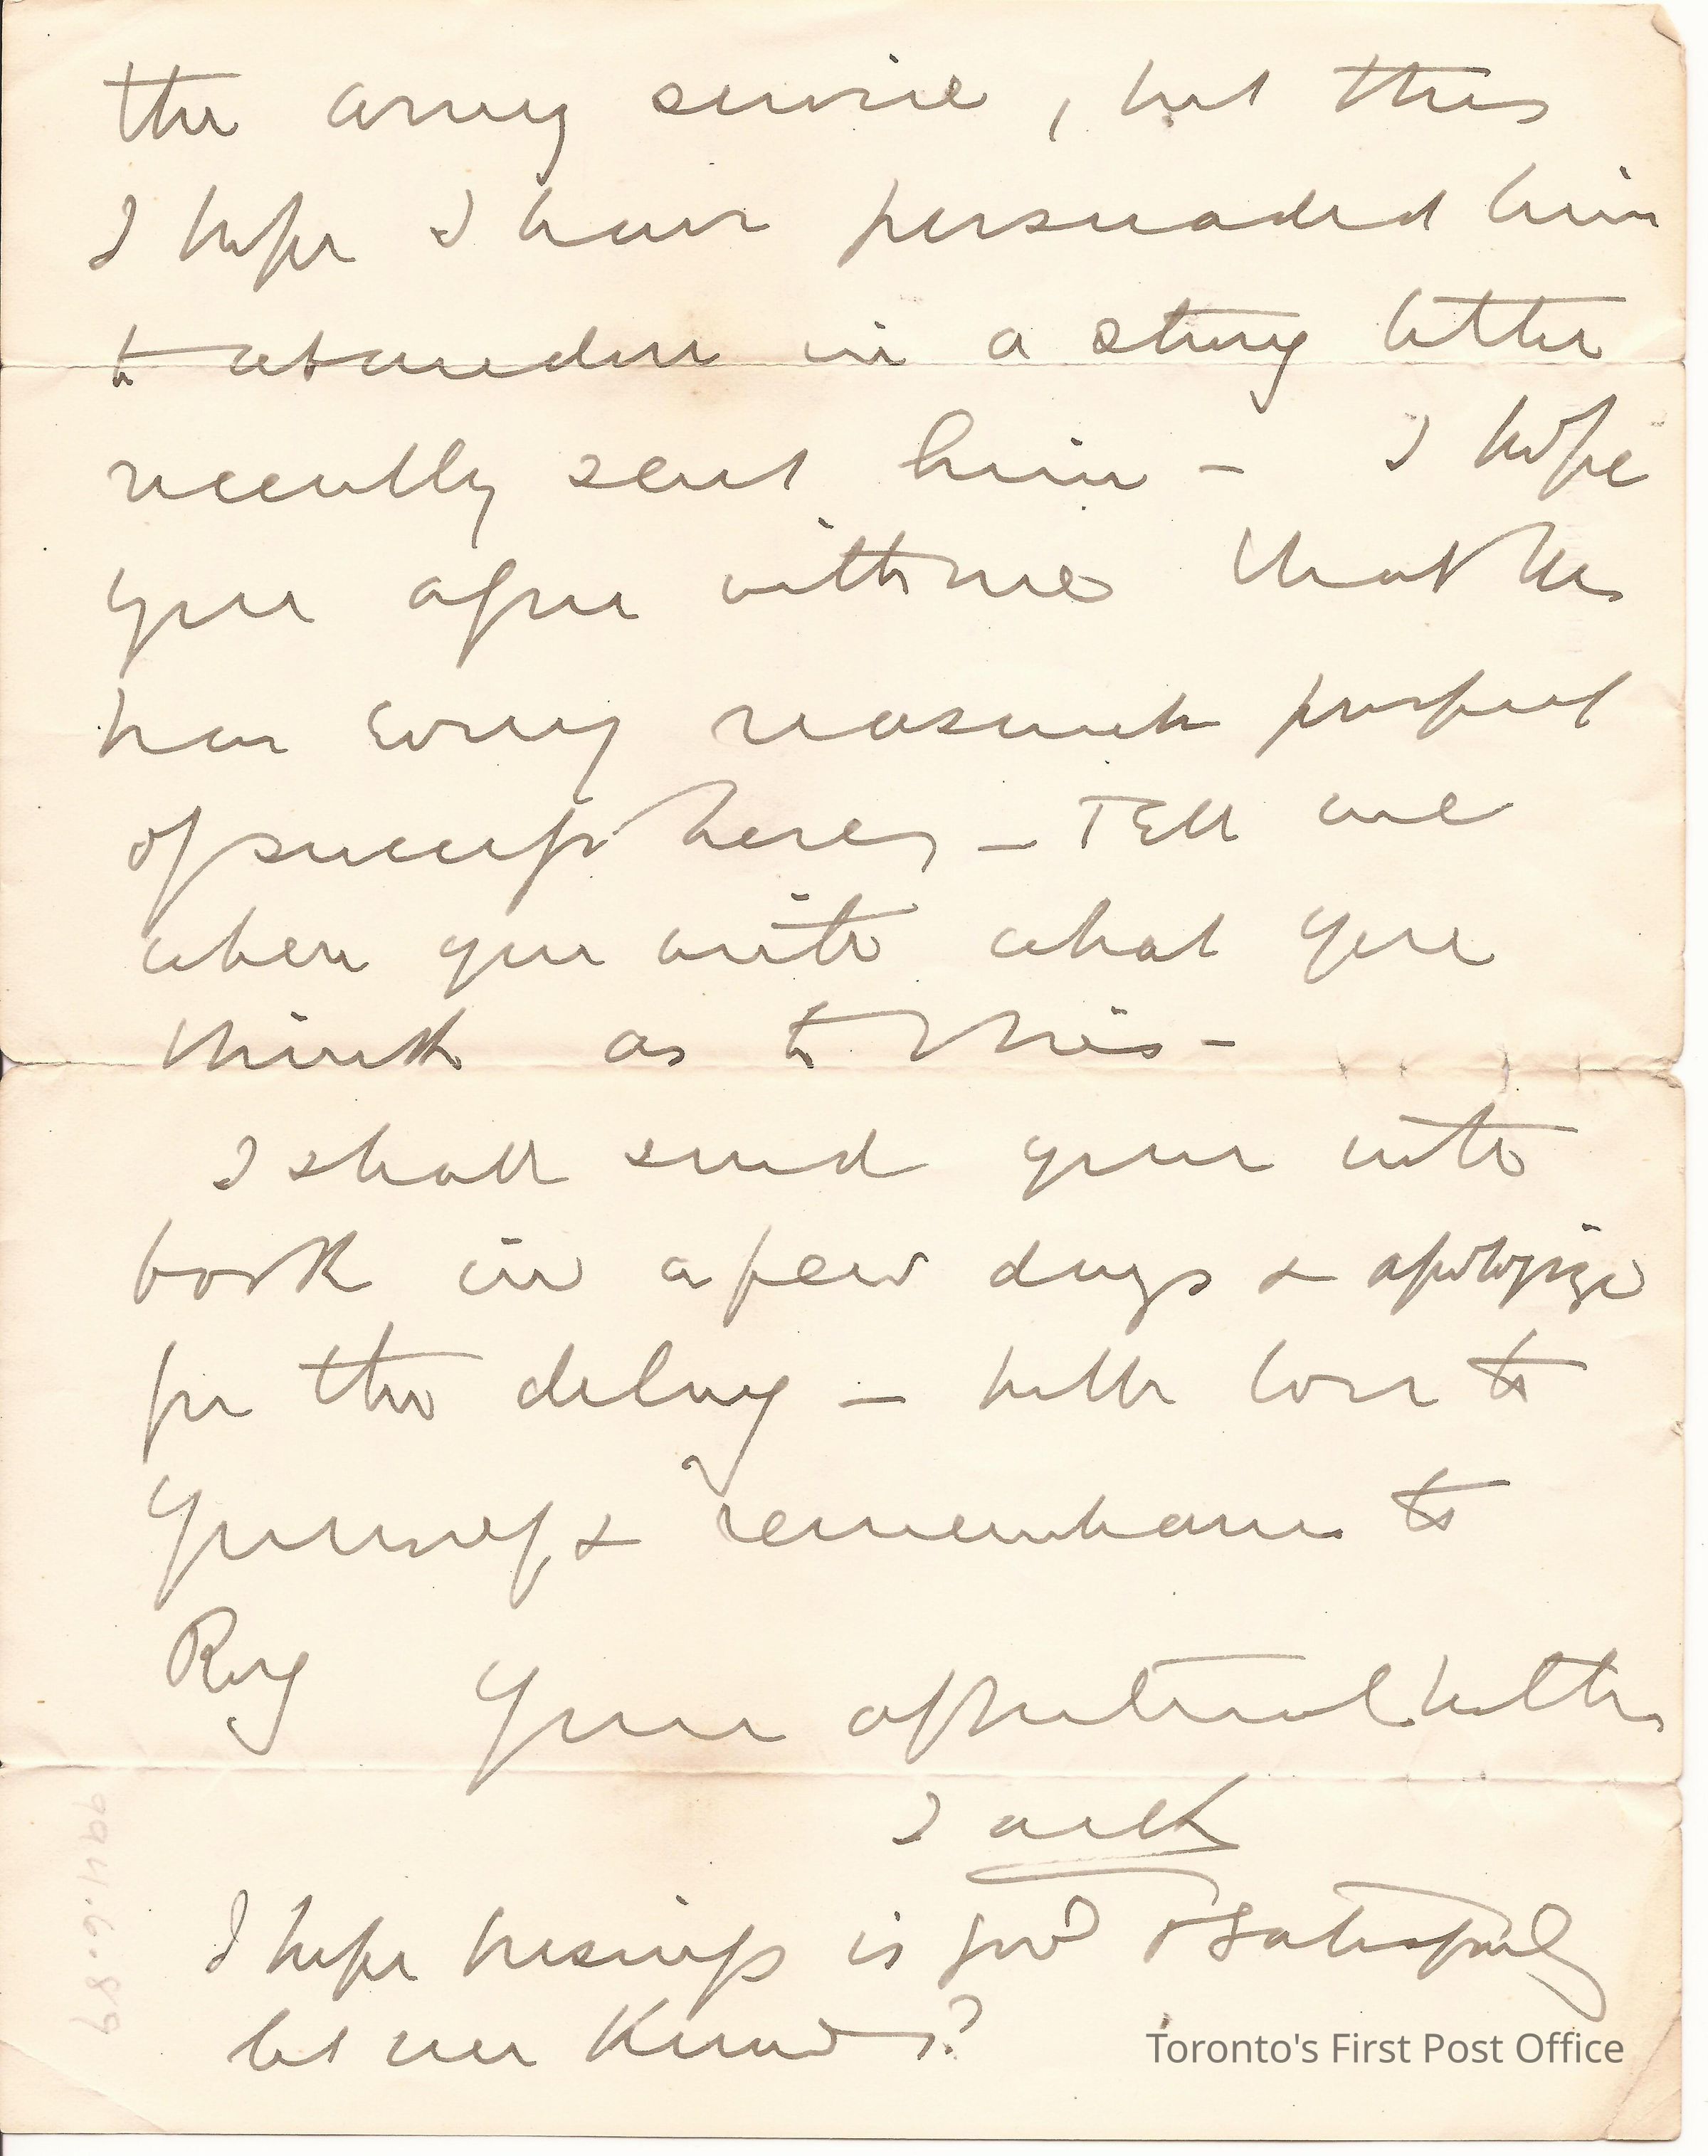 the army service, but this
I hope I have persuaded him
to abandon in a strong letter
recently sent him – I hope
you agree with me that he
has every reasonable prospect
of success here, – Tell me
when you write what you
think as to this –
I shall send your note
book in a few days & apologize
for the delay – with love to
yourself & remembrance to
Roy
Your affectionate brother
Jack
I hope business is good & satisfactory
let me know?
994.6.89
Toronto's First Post Office